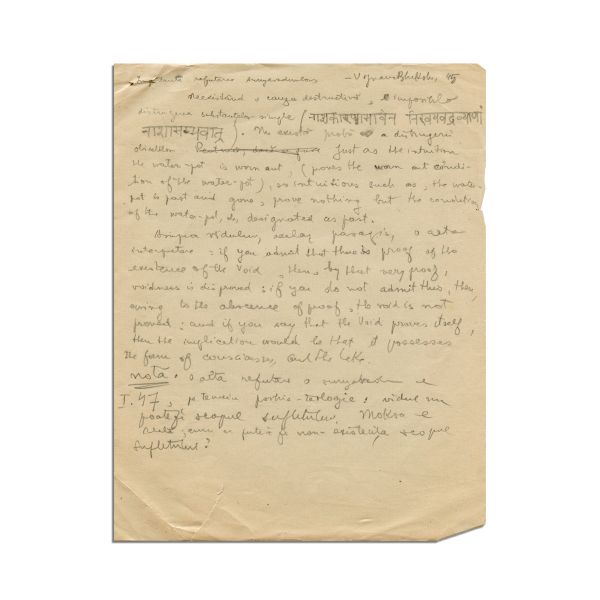 Importantă refutarea sunyavadinilor — Vijnana Bhikshu, 45
neexistând o cauza destructivă, e imposibila
distrugerea substanțelor simple (नाशकारणाभावेन निरवयवद्रव्याणां
नाशासम्भवात्). Nu există proba a distrugerii
obiectelor Just as the intuition
the water-pot is worn out, (proves the worn out condi-
tion of the water-pot), so intuitions such as, the water-
pot is past and gone, prove nothing but the condition
of the water-pot, etc, designated as past.
Asupra vidului, același pasagiu, o alta
interpretare: if you admit that there is proof of the
existence of the Void, then, by that very proof,
voidness is disproved: if you do not admit this, then,
owing to the absence of proof, the void is not
proved: and if you say that the Void proves itself,
then the implication would be that it possesses
the form of consciousness, and the like.
nota: o alta refutare a sunyabadin e
I.47, vidul nu
poate fi scopul sufletului. Moksa e
cum ar putea fi non-existența scopul
sufletului?